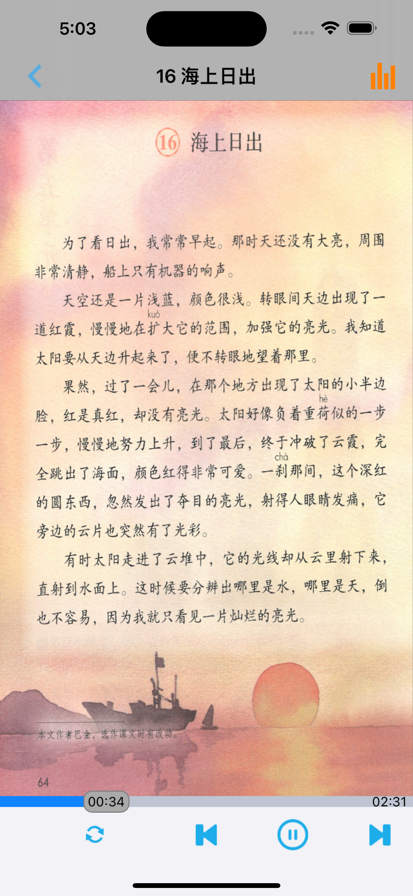 5:03
16 海上日出
16 海上日出
为了看日出，我常常早起。那时天还没有大亮，周围
非常清静，船上只有机器的响声。
天空还是一片浅蓝，颜色很浅。转眼间天边出现了一
kuò
道红霞，慢慢地在扩大它的范围，加强它的亮光。我知道
太阳要从天边升起来了，便不转眼地望着那里。
果然，过了一会儿，在那个地方出现了太阳的小半边
hè
脸，红是真红，却没有亮光。太阳好像负着重荷似的一步
一步，慢慢地努力上升，到了最后，终于冲破了云霞，完
chà
全跳出了海面，颜色红得非常可爱。一刹那间，这个深红
的圆东西，忽然发出了夺目的亮光，射得人眼睛发痛，它
旁边的云片也突然有了光彩。
有时太阳走进了云堆中，它的光线却从云里射下来，
直射到水面上。这时候要分辨出哪里是水，哪里是天，倒
也不容易，因为我就只看见一片灿烂的亮光。
本文作者巴金，选作课文时有改动。
64
00:34
02:31